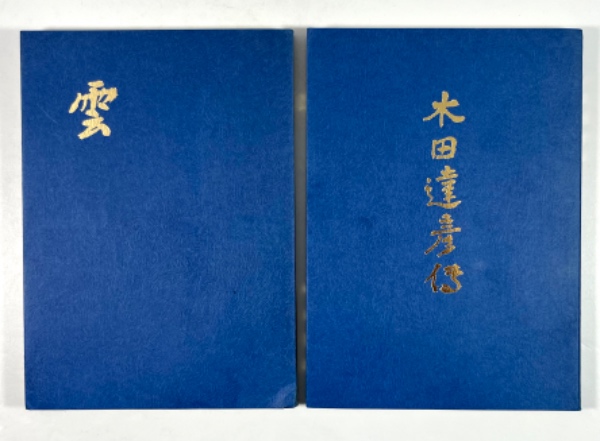 雲
木田達彦伝